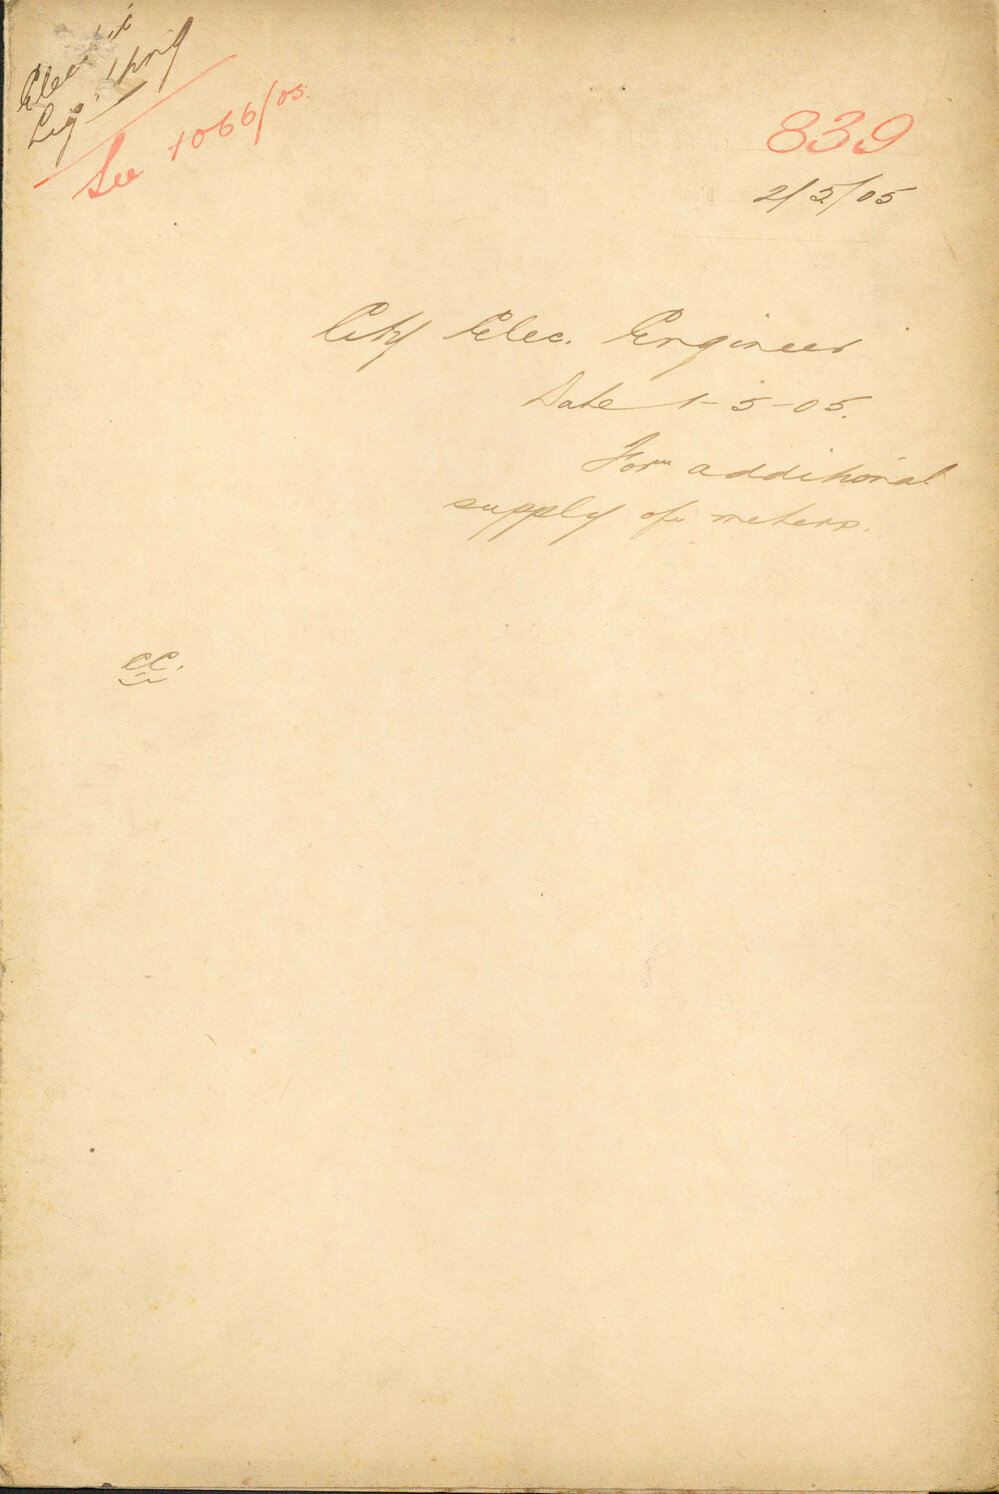 Electric
Lig
See 1066/05.
839
2/5/05
City Elec. Engineer
Date 1-5-05.
For additional
supply of meters.
CC.